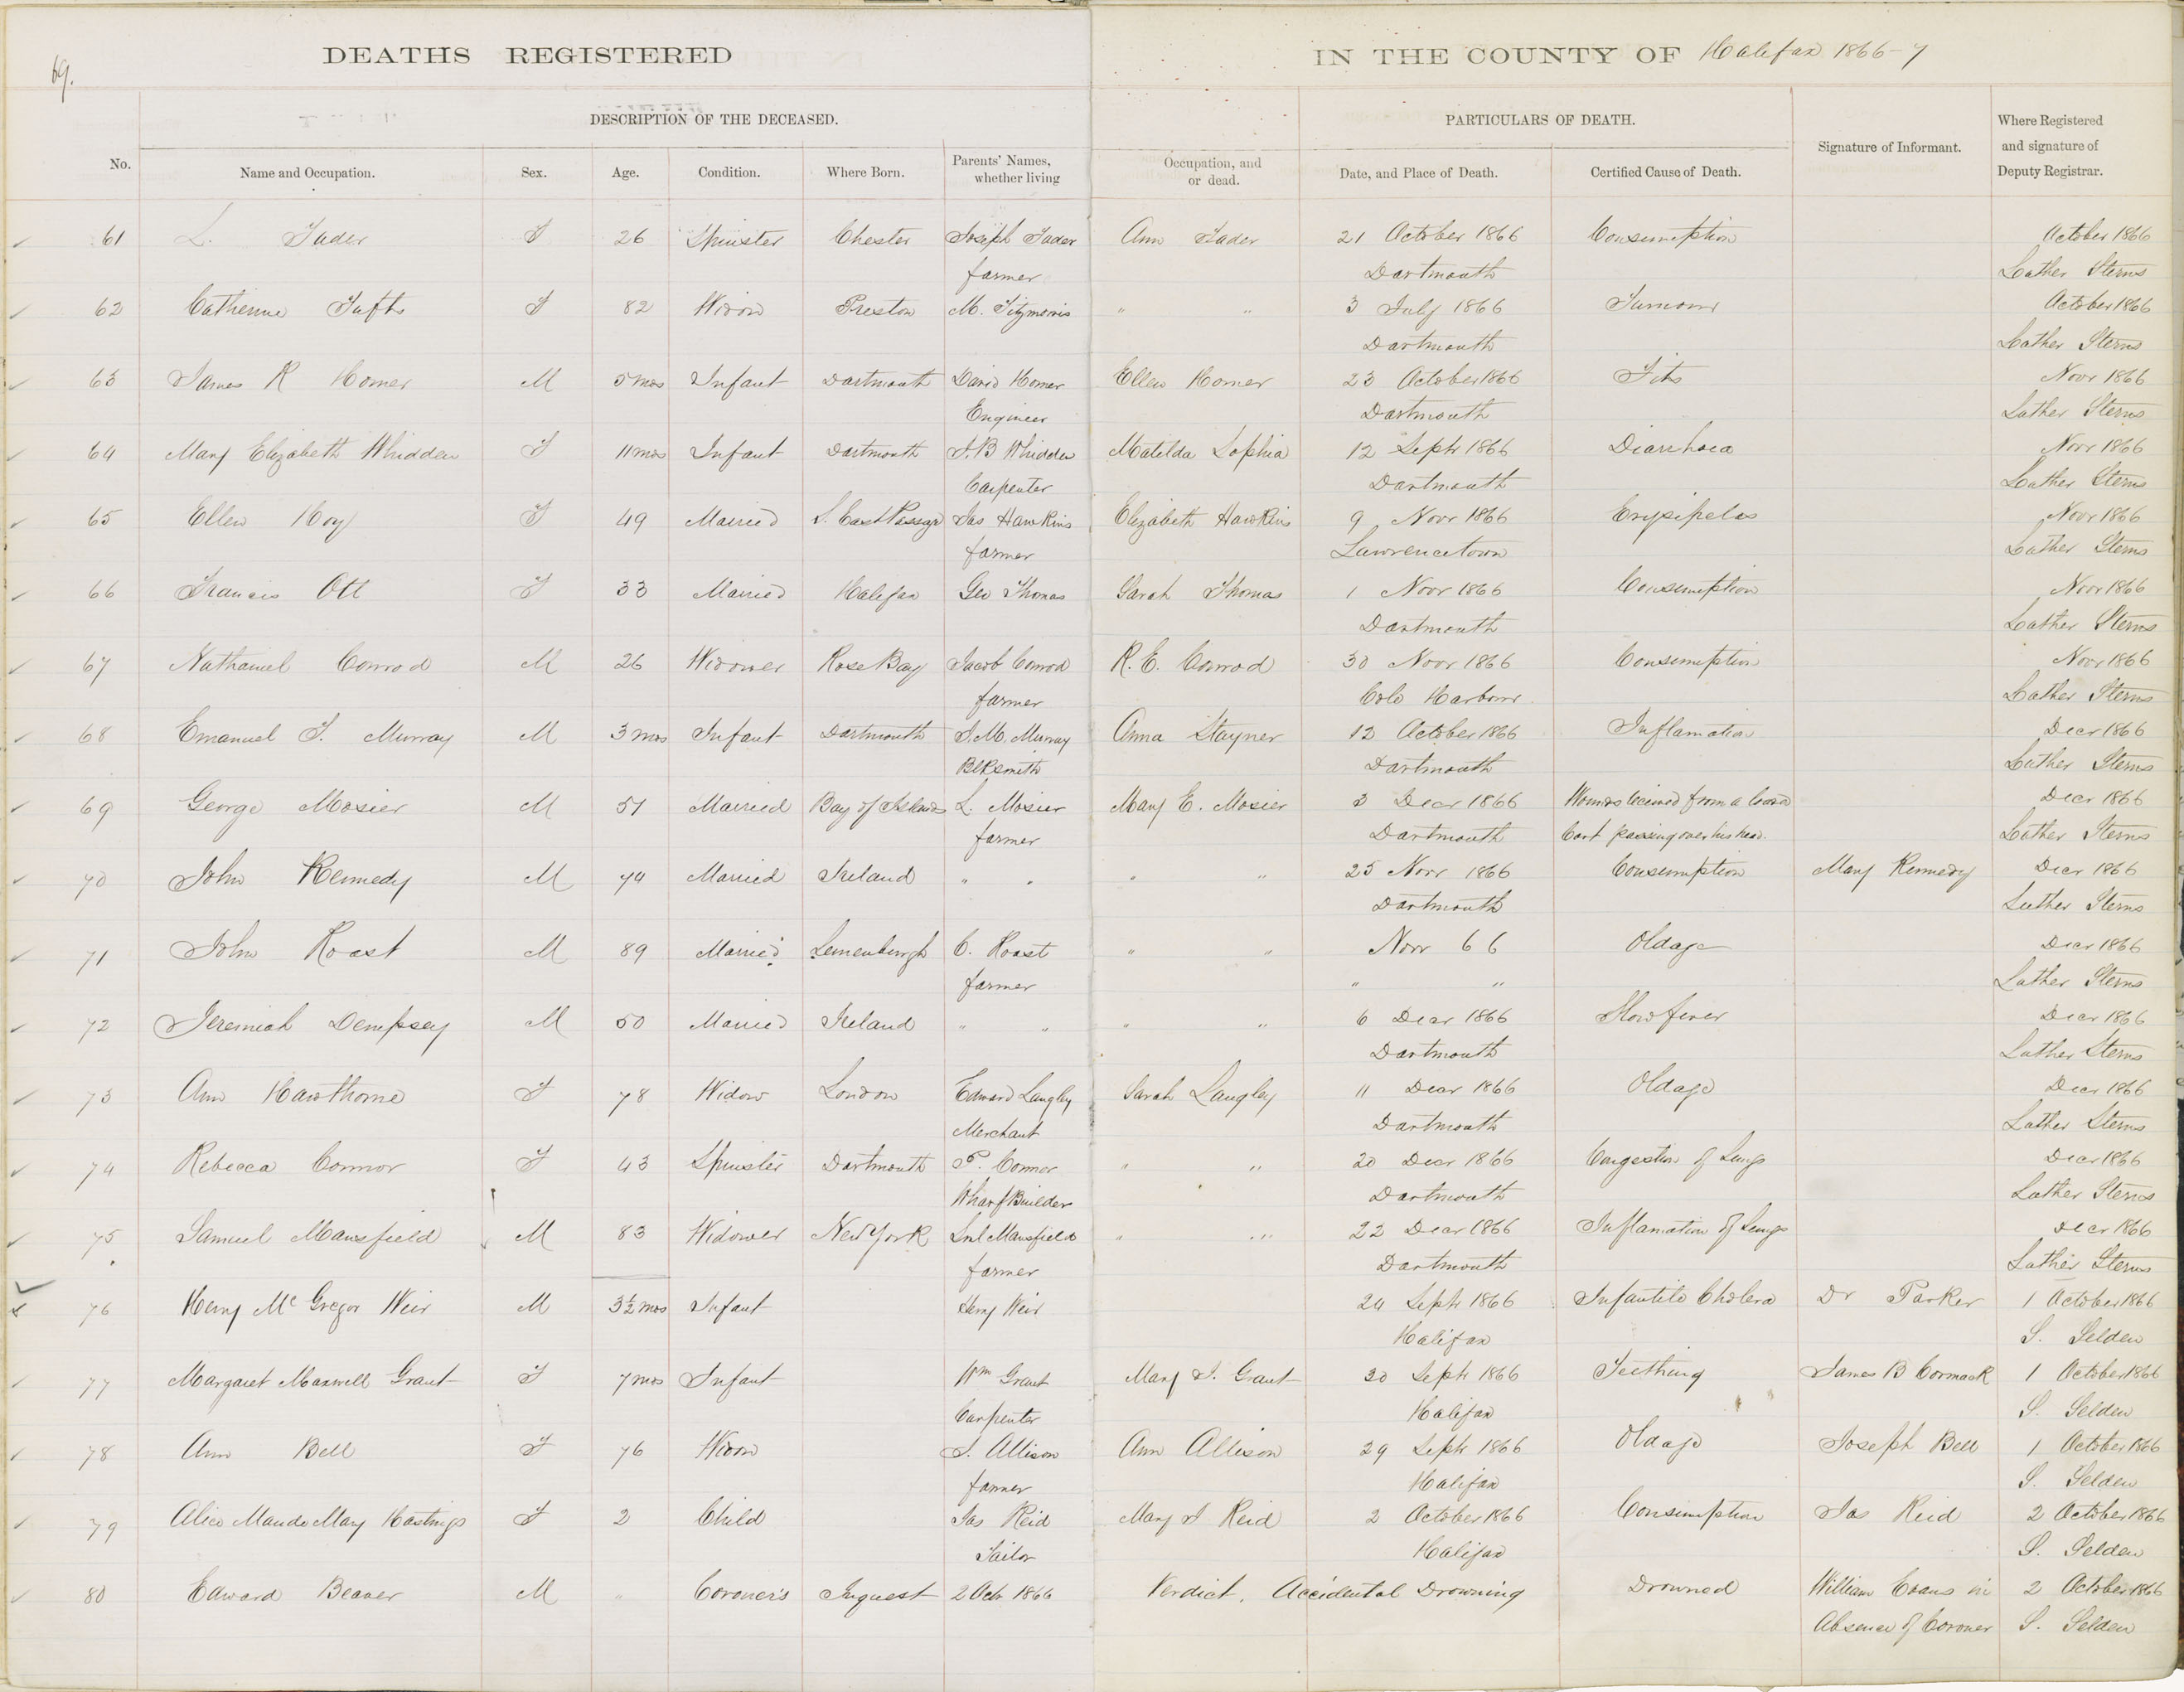 69.
DEATHS REGISTERED IN THE COUNTY OF Halifax 1866-7
DESCRIPTION OF THE DECEASED. PARTICULARS OF DEATH.
No. Name and Occupation. Sex. Age. Condition. Where Born. Parents' Names, whether living Occupation, and or dead. Date, and Place of Death. Certified Cause of Death. Signature of Informant. Where Registered and signature of Deputy Registrar.
61 L. Fader F 26 Spinster Chester Joseph Fader Ann Fader 21 October 1866 Consumption October 1866
farmer Dartmouth Luther Sterns
62 Catherine Tufts F 82 Widow Preston M. Fitzmoris " " 3 July 1866 Tumour October 1866
Dartmouth Luther Sterns
63 James R Homer M 5 mos Infant Dartmouth David Homer Ellen Homer 23 October 1866 Fits Novr 1866
Engineer Dartmouth Luther Sterns
64 Mary Elizabeth Whidden F 11 mos Infant Dartmouth J. B Whidden Matilda Sophia 12 Septr 1866 Diarrhoea Novr 1866
Carpenter Dartmouth Luther Sterns
65 Ellen Hoy F 49 Married S. East Passage Jas Hawkins Elizabeth Hawkins 9 Novr 1866 Erysipelas Novr 1866
farmer Lawrencetown Luther Sterns
66 Francis Ott F 33 Married Halifax Geo Thomas Sarah Thomas 1 Novr 1866 Consumption Novr 1866
Dartmouth Luther Sterns
67 Nathaniel Conrod M 26 Widower Rose Bay Jacob Conrod R. E. Conrod 30 Novr 1866 Consumption Novr 1866
farmer Cole Harbour Luther Sterns
68 Emanuel T. Murray M 3 mos Infant Dartmouth J. M. Murray Anna Stayner 12 October 1866 Inflamation Decr 1866
Blksmith Dartmouth Luther Sterns
69 George Mosier M 51 Married Bay of Islands L. Mosier Mary E. Mosier 3 Decr 1866 Wounds received from a loaded Decr 1866
farmer Dartmouth Cart passing over his head. Luther Sterns
70 John Kennedy M 74 Married Ireland " " " " 25 Novr 1866 Consumption Mary Kennedy Decr 1866
Dartmouth Luther Sterns
71 John Roast M 89 Married Lunenburgh C. Roast " " Novr 66 Oldage Decr 1866
farmer " " Luther Sterns
72 Jeremiah Dempsey M 50 Married Ireland " " " " 6 Decr 1866 Slow fever Decr 1866
Dartmouth Luther Sterns
73 Ann Hawthorne F 78 Widow London Edward Langley Sarah Langley 11 Decr 1866 Oldage Decr 1866
Merchant Dartmouth Luther Sterns
74 Rebecca Connor F 43 Spinster Dartmouth P. Conner " " 20 Decr 1866 Congestion of Lungs Decr 1866
Wharf Builder Dartmouth Luther Sterns
75 Samuel Mansfield M 83 Widower New York Sml Mansfield " " 22 Decr 1866 Inflamation of Lungs Decr 1866
farmer Dartmouth Luther Sterns
76 Henry Mc Gregor Weir M 3½ mos Infant Henry Weir 24 Septr 1866 Infantile Cholera Dr Parker 1 October 1866
Halifax S. Selden
77 Margaret Maxwell Grant F 7 mos Infant Wm Grant Mary J. Grant 30 Septr 1866 Teething James B Cormack 1 October 1866
Carpenter Halifax S. Selden
78 Ann Bell F 76 Widow J. Allison Ann Allison 29 Septr 1866 Oldage Joseph Bell 1 October 1866
farmer Halifax S. Selden
79 Alice Maude Mary Hastings F 2 Child Jas Reid Mary J Reid 2 October 1866 Consumption Jas Reid 2 October 1866
Tailor Halifax S. Selden
80 Edward Beaver M " Coroner's Inquest 2 Octr 1866 Verdict, Accidental Drowning Drowned William Evans in 2 October 1866
Absence of Coroner S. Selden